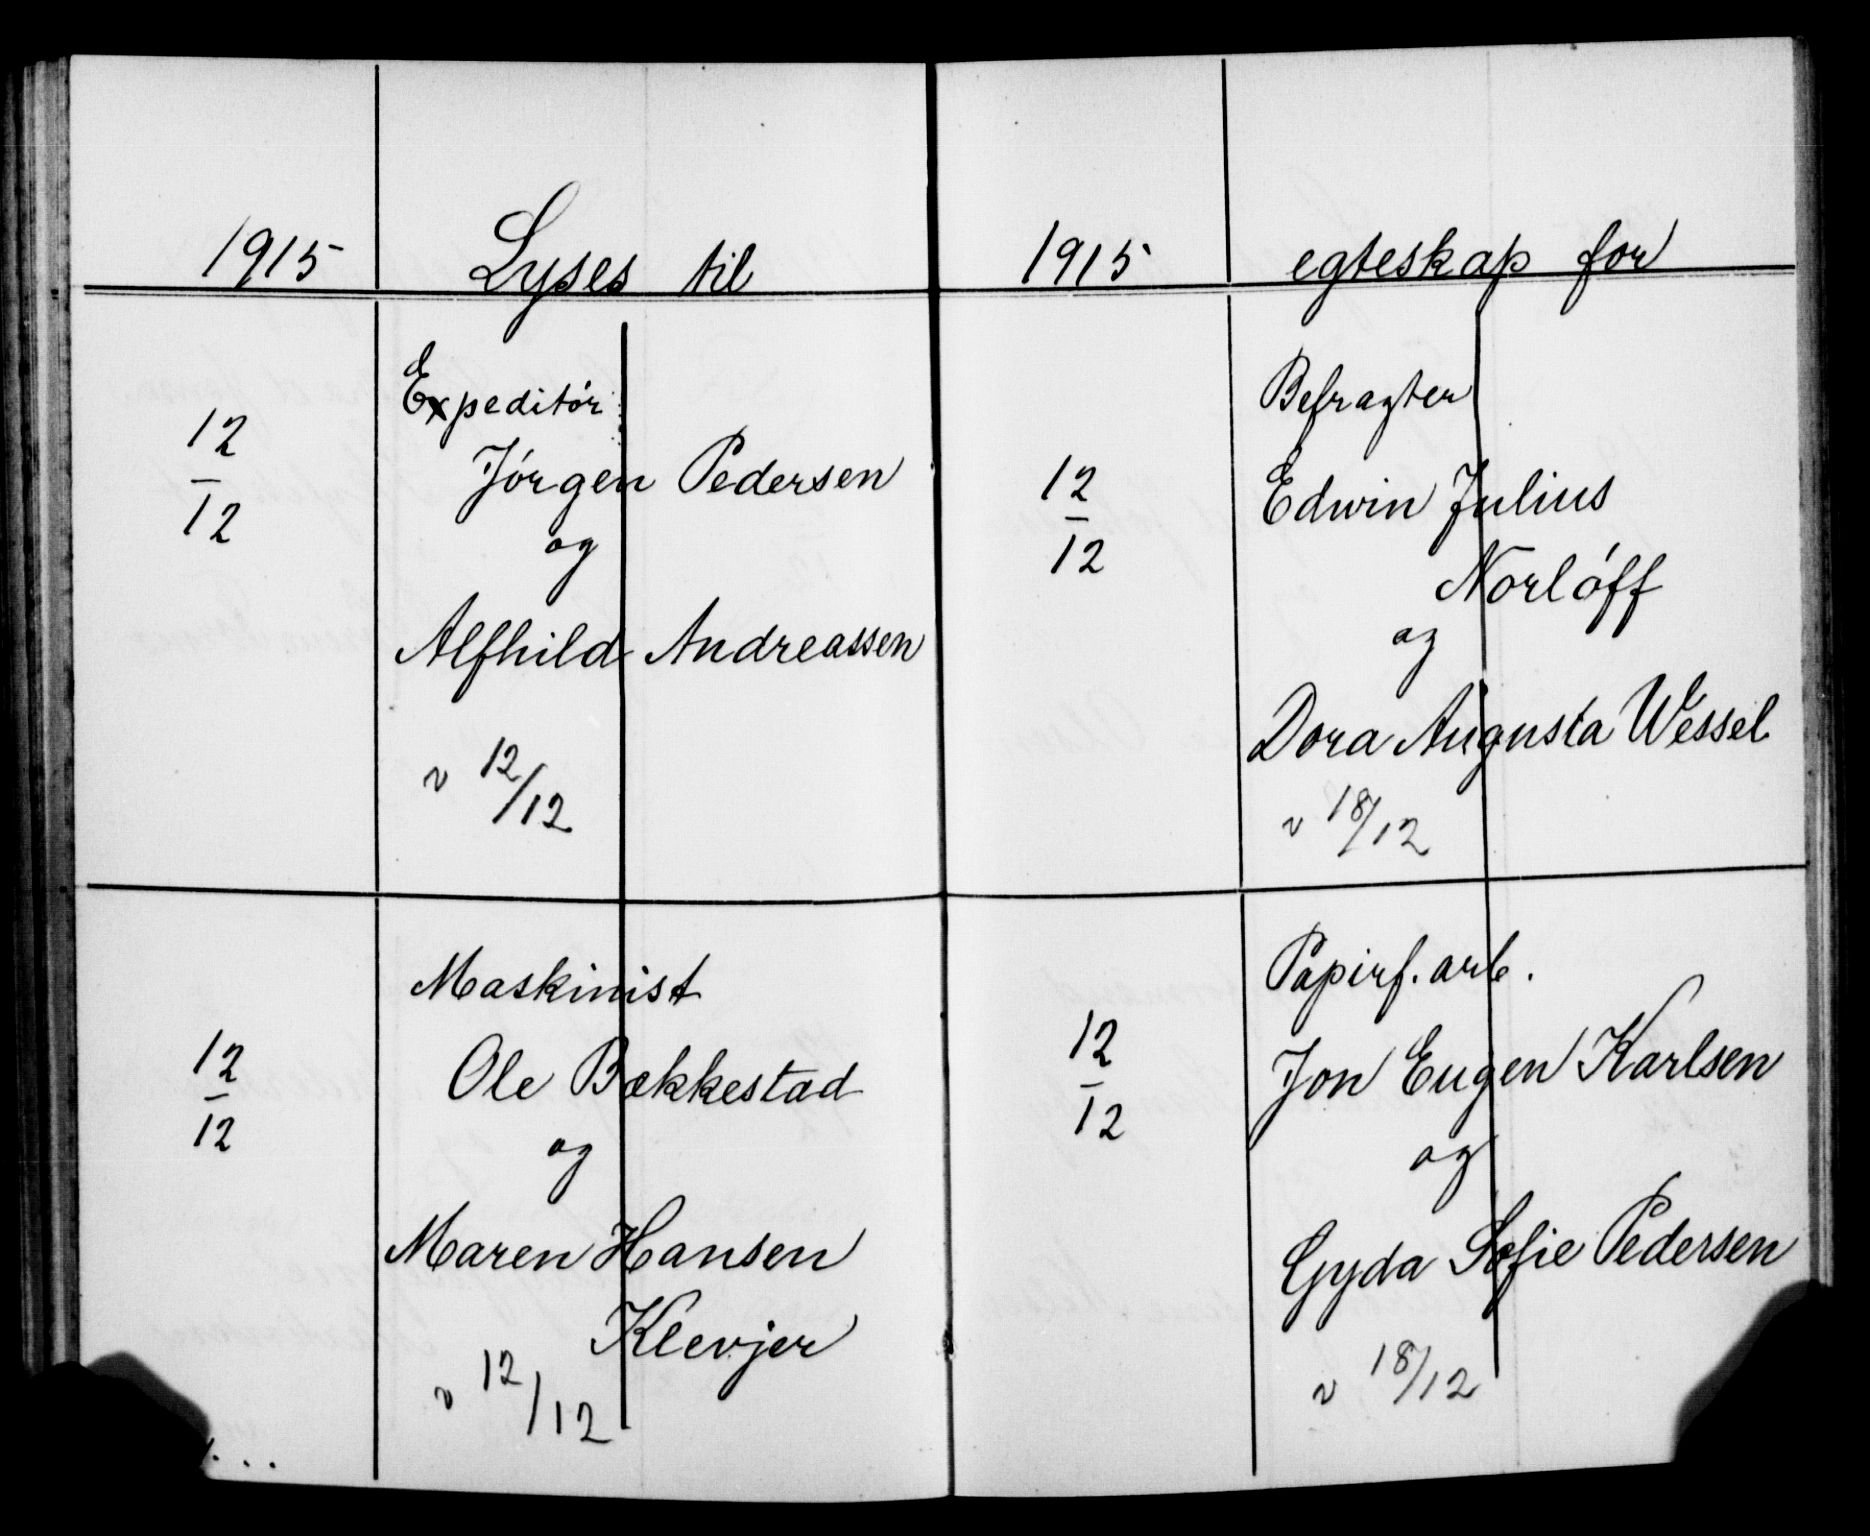 1915 Lyses til
Expeditór
12
Jórgen Pedersen
12
og
Alfhild Andreassen
v 12/12
Maskinist
12
Ole Bækkestad
12
og
Maren Hansen
Klevjer
v 12/12
1915 egteskap for
Befragter
12
Edwin Julius
12
Norlóff
og
Dora Augusta Wessel
v 18/12
Papirf. arb.
12
Jon Eugen Karlsen
12
og
Gyda Sofie Pedersen
v 18/12